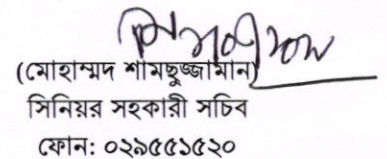 (মোহাম্মদ শামছুজ্জামান)
সিনিয়র সহকারী সচিব
ফোন: ০২৯৫৫১৫২০